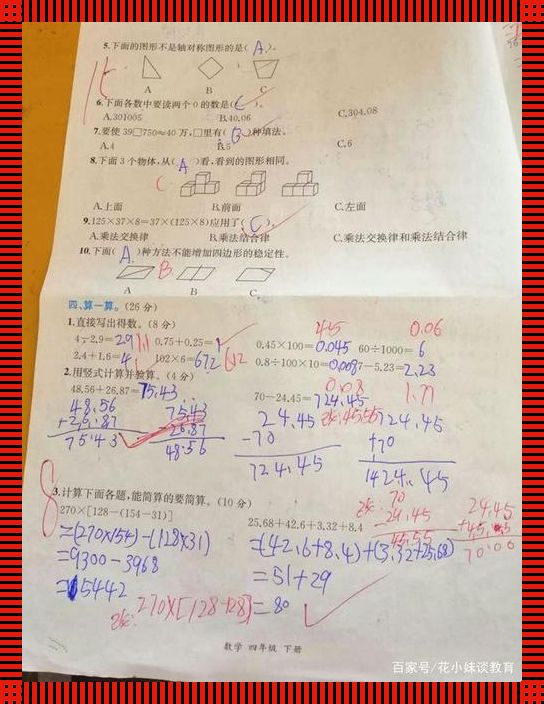 5.下面的图形不是轴对称图形的是( A )。
A B C
6.下面各数中要读两个0的数是( C )。
A.301005 B.40.06 C.304.08
7.要使39□750≈40万,□里有( B )种填法。
A.4 B.5 C.6
8.下面3个物体,从( A )看,看到的图形相同。
C
A.上面 B.前面 C.左面
9.125×37×8=37×(125×8)应用了( C )。
A.乘法交换律 B.乘法结合律 C.乘法交换律和乘法结合律
10.下面( A )种方法不能增加四边形的稳定性。
B.
A B C
四、算一算。(26分)
1.直接写出得数。(8分)
45 0.06
4-2.9=2.9 1.1 0.75+0.25=1 0.45×100=0.045 60÷1000=6
2.4+1.6=4 102×6=672 612 0.8÷100×10=0.008 7-5.23=2.23
0.08 1.77
2.用竖式计算并验算。(4分)
48.56+26.87=75.43 70-24.45=724.45 改:45.55
48.56 75.43 24.45 724.45
+26.87 -26.87 -70 +70
75.43 48.56 724.45 1424.45
8
3.计算下面各题,能简算的要简算。(10分)
270×[128-(154-31)] 25.68+42.6+3.32+8.4
改: 70 24.45
-24.45
45.55 70.00
=(270×154)-(128×31) =(42.6+8.4)+(3.32+25.68)
=9300-3968 =51+29
=15442 =80
改:270×[128-128]
数学 四年级 下册
百家号/花小妹谈教育